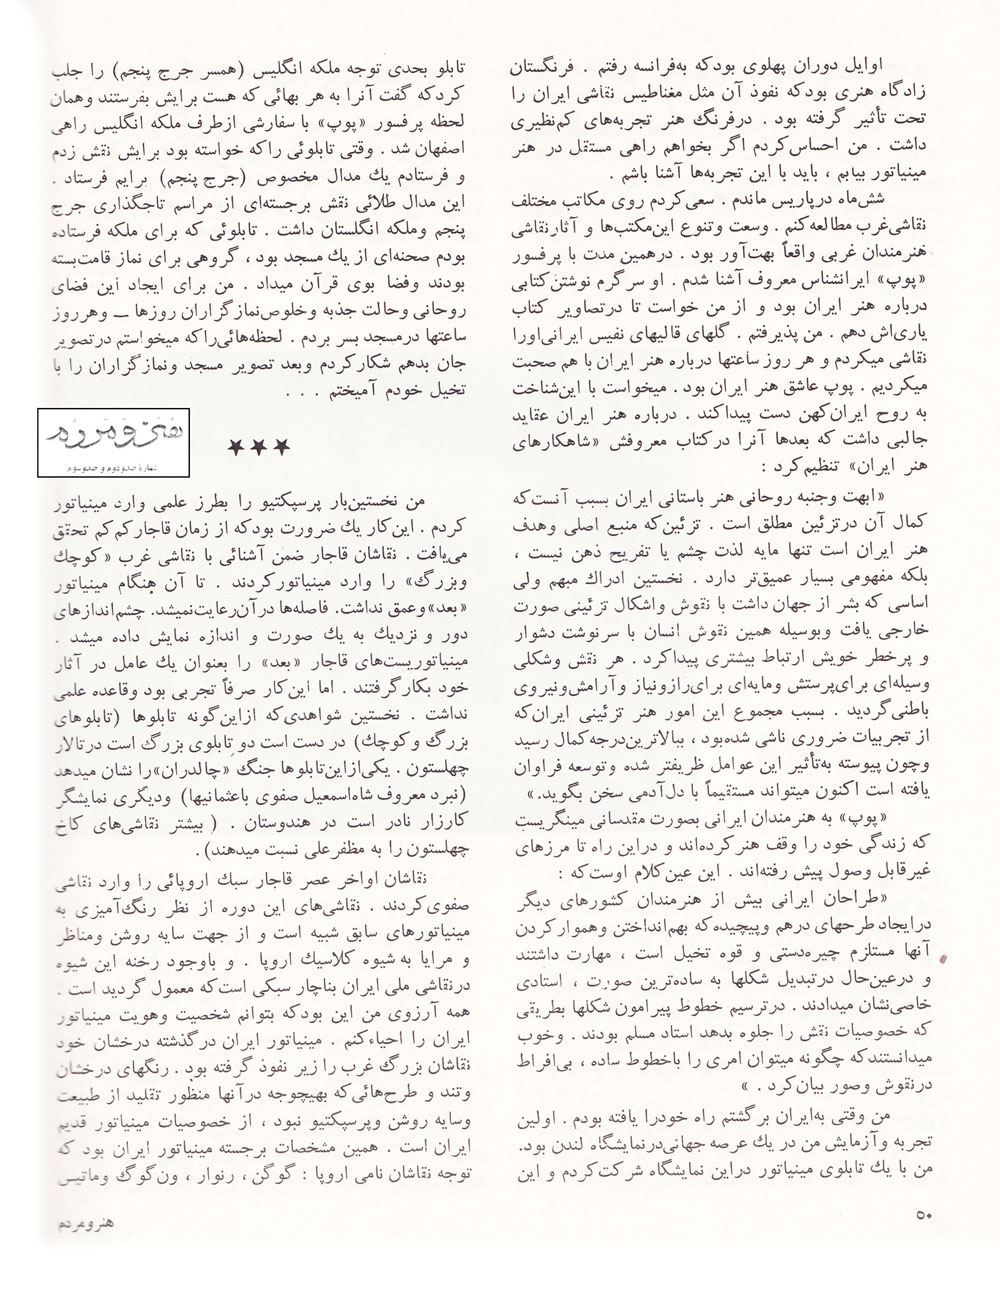 اوایل دوران پهلوی بود که به‌فرانسه رفتم . فرنگستان
زادگاه هنری بود که نفوذ آن مثل مغناطیس نقاشی ایران را
تحت تأثیر گرفته بود . در فرنگ هنر تجربه‌های کم‌نظیری
داشت . من احساس کردم اگر بخواهم راهی مستقل در هنر
مینیاتور بیابم ، باید با این تجربه‌ها آشنا باشم .
شش‌ماه در پاریس ماندم . سعی کردم روی مکاتب مختلف
نقاشی غرب مطالعه کنم . وسعت وتنوع این مکتب‌ها و آثار نقاشی
هنرمندان غربی واقعاً بهت‌آور بود . درهمین مدت با پرفسور
«پوپ» ایرانشناس معروف آشنا شدم . او سرگرم نوشتن کتابی
درباره هنر ایران بود و از من خواست تا در تصاویر کتاب
یاری‌اش دهم . من پذیرفتم . گلهای قالیهای نفیس ایرانی اورا
نقاشی میکردم و هر روز ساعتها درباره هنر ایران با هم صحبت
میکردیم . پوپ عاشق هنر ایران بود . میخواست با این شناخت
به روح ایران کهن دست پیدا کند . درباره هنر ایران عقاید
جالبی داشت که بعدها آنرا در کتاب معروفش «شاهکارهای
هنر ایران» تنظیم کرد :
«ابهت وجنبه روحانی هنر باستانی ایران بسبب آنست که
کمال آن در تزئین مطلق است . تزئین که منبع اصلی وهدف
هنر ایران است تنها مایه لذت چشم یا تفریح ذهن نیست ،
بلکه مفهومی بسیار عمیق‌تر دارد . نخستین ادراک مبهم ولی
اساسی که بشر از جهان داشت با نقوش واشکال تزئینی صورت
خارجی یافت وبوسیله همین نقوش انسان با سرنوشت دشوار
و پرخطر خویش ارتباط بیشتری پیدا کرد . هر نقش وشکلی
وسیله‌ای برای پرستش ومایه‌ای برای رازونیاز و آرامش ونیروی
باطنی گردید . بسبب مجموع این امور هنر تزئینی ایران که
از تجربیات ضروری ناشی شده بود ، ببالاترین درجه کمال رسید
وچون پیوسته به‌تأثیر این عوامل ظریفتر شده وتوسعه فراوان
یافته است اکنون میتواند مستقیماً با دل آدمی سخن بگوید.»
«پوپ» به هنرمندان ایرانی بصورت مقدسانی مینگریست
که زندگی خود را وقف هنر کرده‌اند و دراین راه تا مرزهای
غیرقابل وصول پیش رفته‌اند . این عین کلام اوست که :
«طراحان ایرانی بیش از هنرمندان کشورهای دیگر
درایجاد طرحهای درهم وپیچیده که بهم انداختن وهموار کردن
آنها مستلزم چیره‌دستی و قوه تخیل است ، مهارت داشتند
و درعین حال درتبدیل شکلها به ساده‌ترین صورت ، استادی
خاصی نشان میدادند . درترسیم خطوط پیرامون شکلها بطریقی
که خصوصیات نقش را جلوه بدهد استاد مسلم بودند . وخوب
میدانستند که چگونه میتوان امری را باخطوط ساده ، بی‌افراط
درنقوش وصور بیان کرد . »
من وقتی به‌ایران برگشتم راه خودرا یافته بودم . اولین
تجربه و آزمایش من در یک عرصه جهانی درنمایشگاه لندن بود.
من با یک تابلوی مینیاتور دراین نمایشگاه شرکت کردم و این
تابلو بحدی توجه ملکه انگلیس (همسر جرج پنجم) را جلب
کرد که گفت آنرا به هر بهائی که هست برایش بفرستند وهمان
لحظه پرفسور «پوپ» با سفارشی ازطرف ملکه انگلیس راهی
اصفهان شد . وقتی تابلوئی را که خواسته بود برایش نقش زدم
و فرستادم یک مدال مخصوص (جرج پنجم) برایم فرستاد .
این مدال طلائی نقش برجسته‌ای از مراسم تاجگذاری جرج
پنجم وملکه انگلستان داشت . تابلوئی که برای ملکه فرستاده
بودم صحنه‌ای از یک مسجد بود ، گروهی برای نماز قامت بسته
بودند وفضا بوی قرآن میداد . من برای ایجاد این فضای
روحانی وحالت جذبه وخلوص نمازگزاران روزها ــ وهر روز
ساعتها درمسجد بسر بردم . لحظه‌هائی را که میخواستم درتصویر
جان بدهم شکار کردم وبعد تصویر مسجد ونمازگزاران را با
تخیل خودم آمیختم . . .
هنر و مردم
شمارهٔ صدودوم و صدوسوم
★★★
من نخستین‌بار پرسپکتیو را بطرز علمی وارد مینیاتور
کردم . این کار یک ضرورت بود که از زمان قاجار کم کم تحقق
می‌یافت . نقاشان قاجار ضمن آشنائی با نقاشی غرب «کوچک
وبزرگ» را وارد مینیاتور کردند . تا آن هنگام مینیاتور
«بعد» وعمق نداشت. فاصله‌ها درآن رعایت نمیشد. چشم‌اندازهای
دور و نزدیک به یک صورت و اندازه نمایش داده میشد .
مینیاتوریست‌های قاجار «بعد» را بعنوان یک عامل در آثار
خود بکار گرفتند . اما این کار صرفاً تجربی بود وقاعده علمی
نداشت . نخستین شواهدی که ازاین گونه تابلوها (تابلوهای
بزرگ و کوچک) در دست است دو تابلوی بزرگ است درتالار
چهلستون . یکی ازاین تابلوها جنگ «چالدران» را نشان میدهد
(نبرد معروف شاه اسمعیل صفوی باعثمانیها) ودیگری نمایشگر
کارزار نادر است در هندوستان . (بیشتر نقاشی‌های کاخ
چهلستون را به مظفرعلی نسبت میدهند) .
نقاشان اواخر عصر قاجار سبک اروپائی را وارد نقاشی
صفوی کردند . نقاشی‌های این دوره از نظر رنگ‌آمیزی به
مینیاتورهای سابق شبیه است و از جهت سایه روشن ومناظر
و مرایا به شیوه کلاسیک اروپا . و باوجود رخنه این شیوه
درنقاشی ملی ایران بناچار سبکی است که معمول گردید است .
همه آرزوی من این بود که بتوانم شخصیت وهویت مینیاتور
ایران را احیاء کنم . مینیاتور ایران در گذشته درخشان خود
نقاشان بزرگ غرب را زیر نفوذ گرفته بود . رنگهای درخشان
وتند و طرح‌هائی که بهیچوجه درآنها منظور تقلید از طبیعت
وسایه روشن وپرسپکتیو نبود ، از خصوصیات مینیاتور قدیم
ایران است . همین مشخصات برجسته مینیاتور ایران بود که
توجه نقاشان نامی اروپا : گوگن ، رنوار ، ون‌گوگ وماتیس
۵۰
هنر و مردم